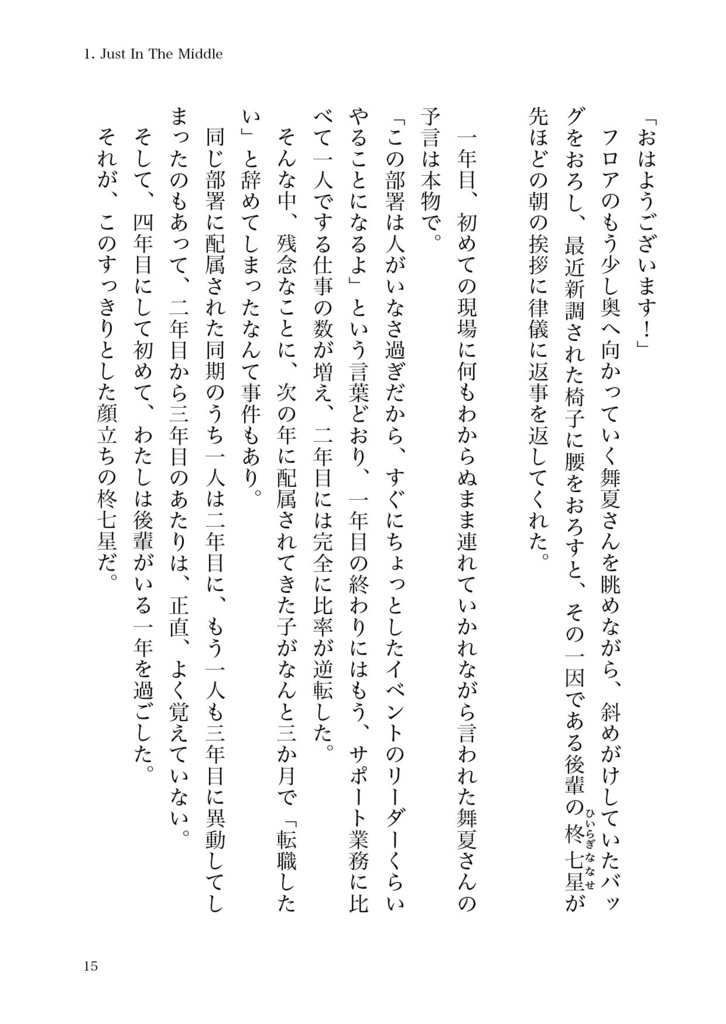 1. Just In The Middle
「おはようございます！」
フロアのもう少し奥へ向かっていく舞夏さんを眺めながら、斜めがけしていたバッ
グをおろし、最近新調された椅子に腰をおろすと、その一因である後輩の柊七星が
ひいらぎななせ
先ほどの朝の挨拶に律儀に返事を返してくれた。
一年目、初めての現場に何もわからぬまま連れていかれながら言われた舞夏さんの
予言は本物で。
「この部署は人がいなさ過ぎだから、すぐにちょっとしたイベントのリーダーくらい
やることになるよ」という言葉どおり、一年目の終わりにはもう、サポート業務に比
べて一人でする仕事の数が増え、二年目には完全に比率が逆転した。
そんな中、残念なことに、次の年に配属されてきた子がなんと三か月で「転職した
い」と辞めてしまったなんて事件もあり。
同じ部署に配属された同期のうち一人は二年目に、もう一人も三年目に異動してし
まったのもあって、二年目から三年目のあたりは、正直、よく覚えていない。
そして、四年目にして初めて、わたしは後輩がいる一年を過ごした。
それが、このすっきりとした顔立ちの柊七星だ。
15